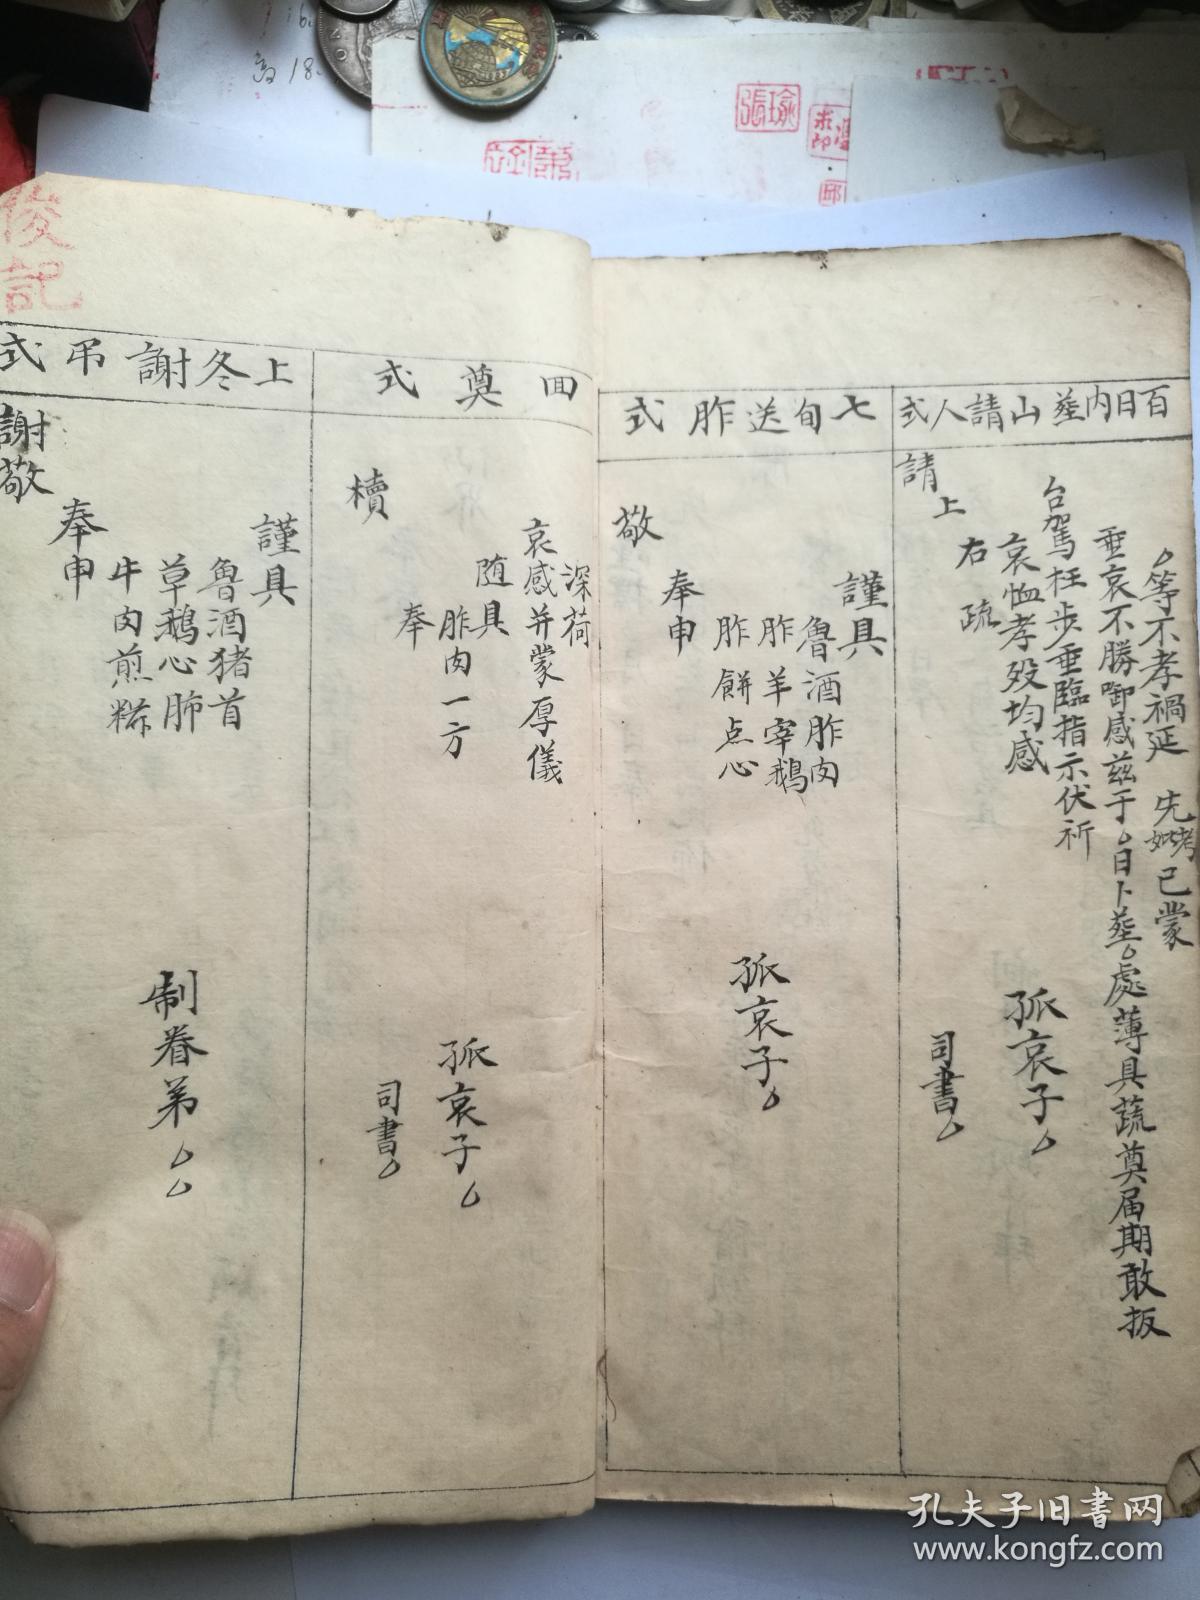 百日內塟山請人式
厶等不孝禍延 先考妣已蒙
垂哀不勝啣感兹于厶日卜塟厶處薄具蔬奠届期敢扳
台駕枉步垂臨指示伏祈
哀恤孝歿均感
右 疏
請上
孤哀子厶
司書厶
七旬送胙式
謹具
魯酒胙肉
胙羊宰鵝
胙餅点心
奉申
敬
孤哀子厶
回奠式
深荷
哀感并蒙厚儀
随具
胙肉一方
奉
櫝
孤哀子厶
司書厶
上冬謝吊式
謹具
魯酒猪首
草鵝心肺
牛肉煎糍
奉申
謝敬
制眷弟厶厶
俊記
張瑜
孔夫子旧书网
www.kongfz.com